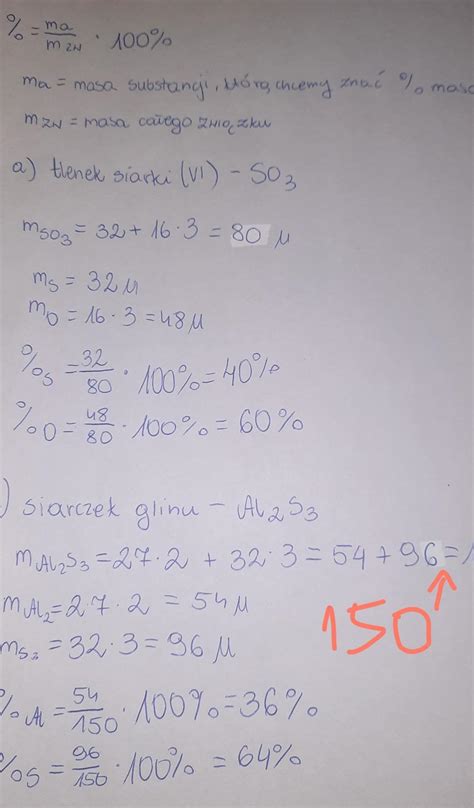 % = ma/mZN · 100%
ma = masa substancji, którą chcemy znać % maso
mZN = masa całego związku
a) tlenek siarki (VI) - SO3
mSO3 = 32 + 16 · 3 = 80 μ
mS = 32 μ
mO = 16 · 3 = 48 μ
%S = 32/80 · 100% = 40%
%O = 48/80 · 100% = 60%
) siarczek glinu - Al2S3
mAl2S3 = 27 · 2 + 32 · 3 = 54 + 96 = 1
mAl2 = 27 · 2 = 54 μ
150
mS3 = 32 · 3 = 96 μ
%Al = 54/150 · 100% = 36%
%S = 96/150 · 100% = 64%